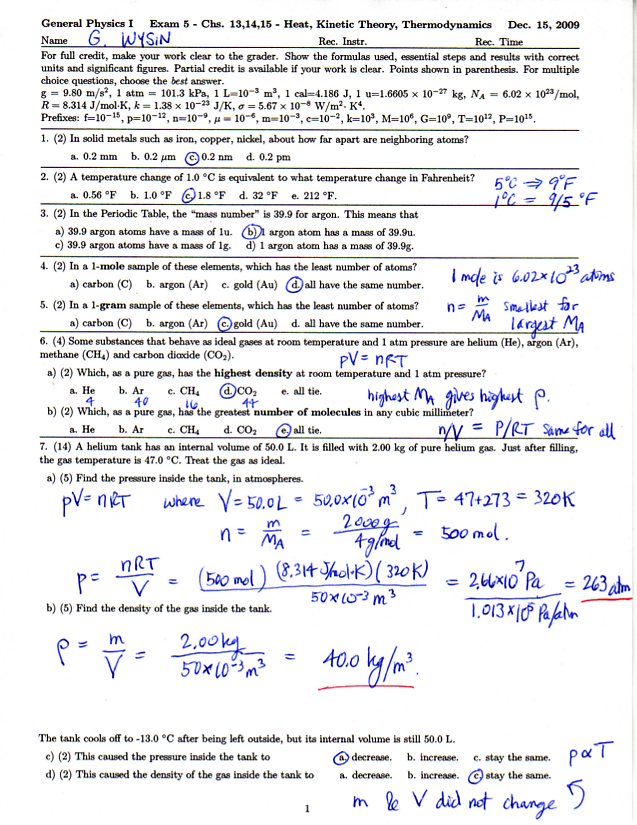 General Physics I Exam 5 - Chs. 13,14,15 - Heat, Kinetic Theory, Thermodynamics Dec. 15, 2009
Name G. WYSIN Rec. Instr. Rec. Time
For full credit, make your work clear to the grader. Show the formulas used, essential steps and results with correct
units and significant figures. Partial credit is available if your work is clear. Points shown in parenthesis. For multiple
choice questions, choose the best answer.
g = 9.80 m/s², 1 atm = 101.3 kPa, 1 L=10⁻³ m³, 1 cal=4.186 J, 1 u=1.6605 × 10⁻²⁷ kg, N_A = 6.02 × 10²³/mol,
R = 8.314 J/mol·K, k = 1.38 × 10⁻²³ J/K, σ = 5.67 × 10⁻⁸ W/m²· K⁴.
Prefixes: f=10⁻¹⁵, p=10⁻¹², n=10⁻⁹, μ = 10⁻⁶, m=10⁻³, c=10⁻², k=10³, M=10⁶, G=10⁹, T=10¹², P=10¹⁵.
1. (2) In solid metals such as iron, copper, nickel, about how far apart are neighboring atoms?
a. 0.2 mm b. 0.2 μm c. 0.2 nm d. 0.2 pm
2. (2) A temperature change of 1.0 °C is equivalent to what temperature change in Fahrenheit?
5°C ⇒ 9°F
a. 0.56 °F b. 1.0 °F c. 1.8 °F d. 32 °F e. 212 °F.
1°C = 9/5 °F
3. (2) In the Periodic Table, the “mass number” is 39.9 for argon. This means that
a) 39.9 argon atoms have a mass of 1u. b) 1 argon atom has a mass of 39.9u.
c) 39.9 argon atoms have a mass of 1g. d) 1 argon atom has a mass of 39.9g.
4. (2) In a 1-mole sample of these elements, which has the least number of atoms?
a) carbon (C) b. argon (Ar) c. gold (Au) d. all have the same number.
1 mole is 6.02×10²³ atoms
5. (2) In a 1-gram sample of these elements, which has the least number of atoms?
n = m/M_A smallest for
a) carbon (C) b. argon (Ar) c. gold (Au) d. all have the same number.
largest M_A
6. (4) Some substances that behave as ideal gases at room temperature and 1 atm pressure are helium (He), argon (Ar),
methane (CH₄) and carbon dioxide (CO₂).
pV = nRT
a) (2) Which, as a pure gas, has the highest density at room temperature and 1 atm pressure?
a. He b. Ar c. CH₄ d. CO₂ e. all tie.
4 40 16 44
highest M_A gives highest ρ.
b) (2) Which, as a pure gas, has the greatest number of molecules in any cubic millimeter?
a. He b. Ar c. CH₄ d. CO₂ e. all tie.
n/V = P/RT same for all
7. (14) A helium tank has an internal volume of 50.0 L. It is filled with 2.00 kg of pure helium gas. Just after filling,
the gas temperature is 47.0 °C. Treat the gas as ideal.
a) (5) Find the pressure inside the tank, in atmospheres.
pV = nRT where V = 50.0L = 50.0×10⁻³ m³, T = 47+273 = 320K
n = m/M_A = 2000g/4g/mol = 500 mol.
p = nRT/V = (500 mol) (8.314 J/mol·K) (320 K)/50×10⁻³ m³ = 2.66×10⁷ Pa/1.013×10⁵ Pa/atm = 263 atm
b) (5) Find the density of the gas inside the tank.
ρ = m/V = 2.00kg/50×10⁻³ m³ = 40.0 kg/m³.
The tank cools off to -13.0 °C after being left outside, but its internal volume is still 50.0 L.
c) (2) This caused the pressure inside the tank to a. decrease. b. increase. c. stay the same. p∝T
d) (2) This caused the density of the gas inside the tank to a. decrease. b. increase. c. stay the same.
m & V did not change
1